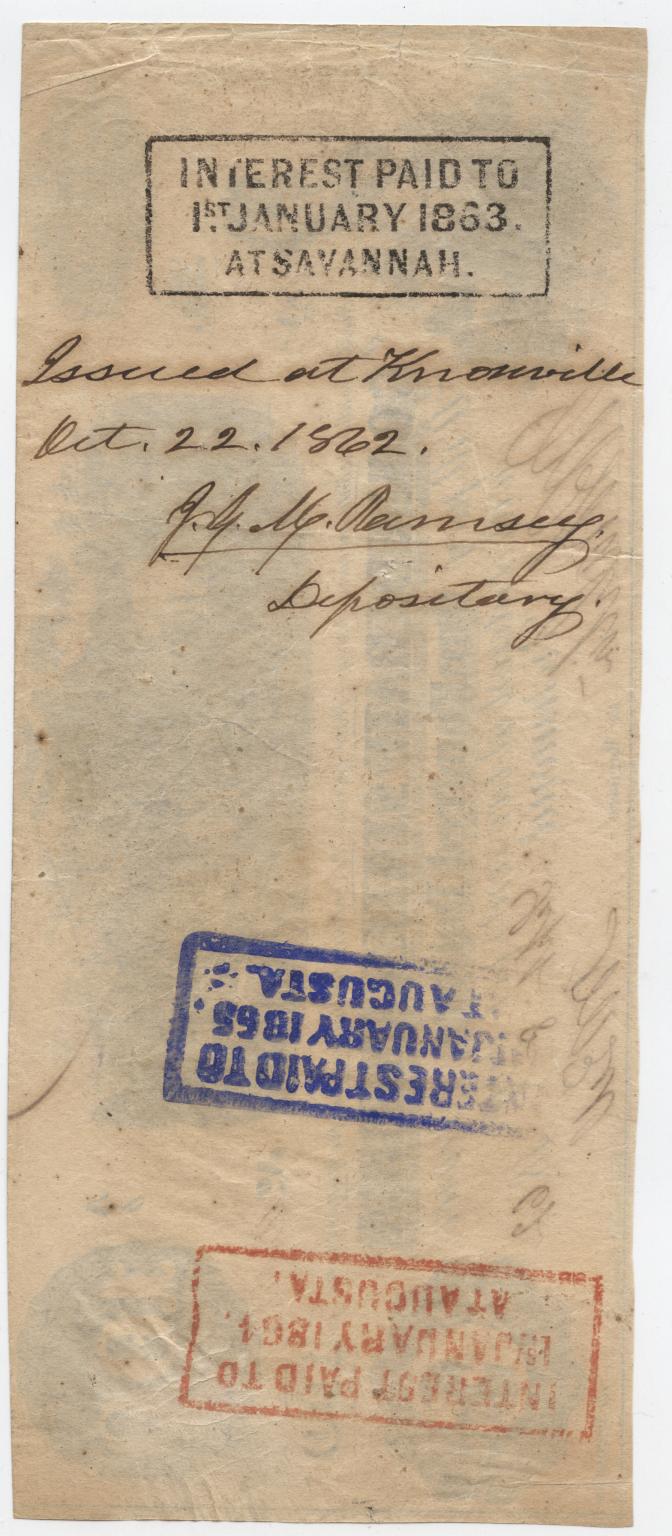 INTEREST PAID TO
1ST JANUARY 1863.
AT SAVANNAH.
Issued at Knoxville
Oct. 22. 1862.
J. G. M. Ramsey,
Depositary.
INTEREST PAID TO
1ST JANUARY 1865
AT AUGUSTA.
INTEREST PAID TO
1ST JANUARY 1864.
AT AUGUSTA.